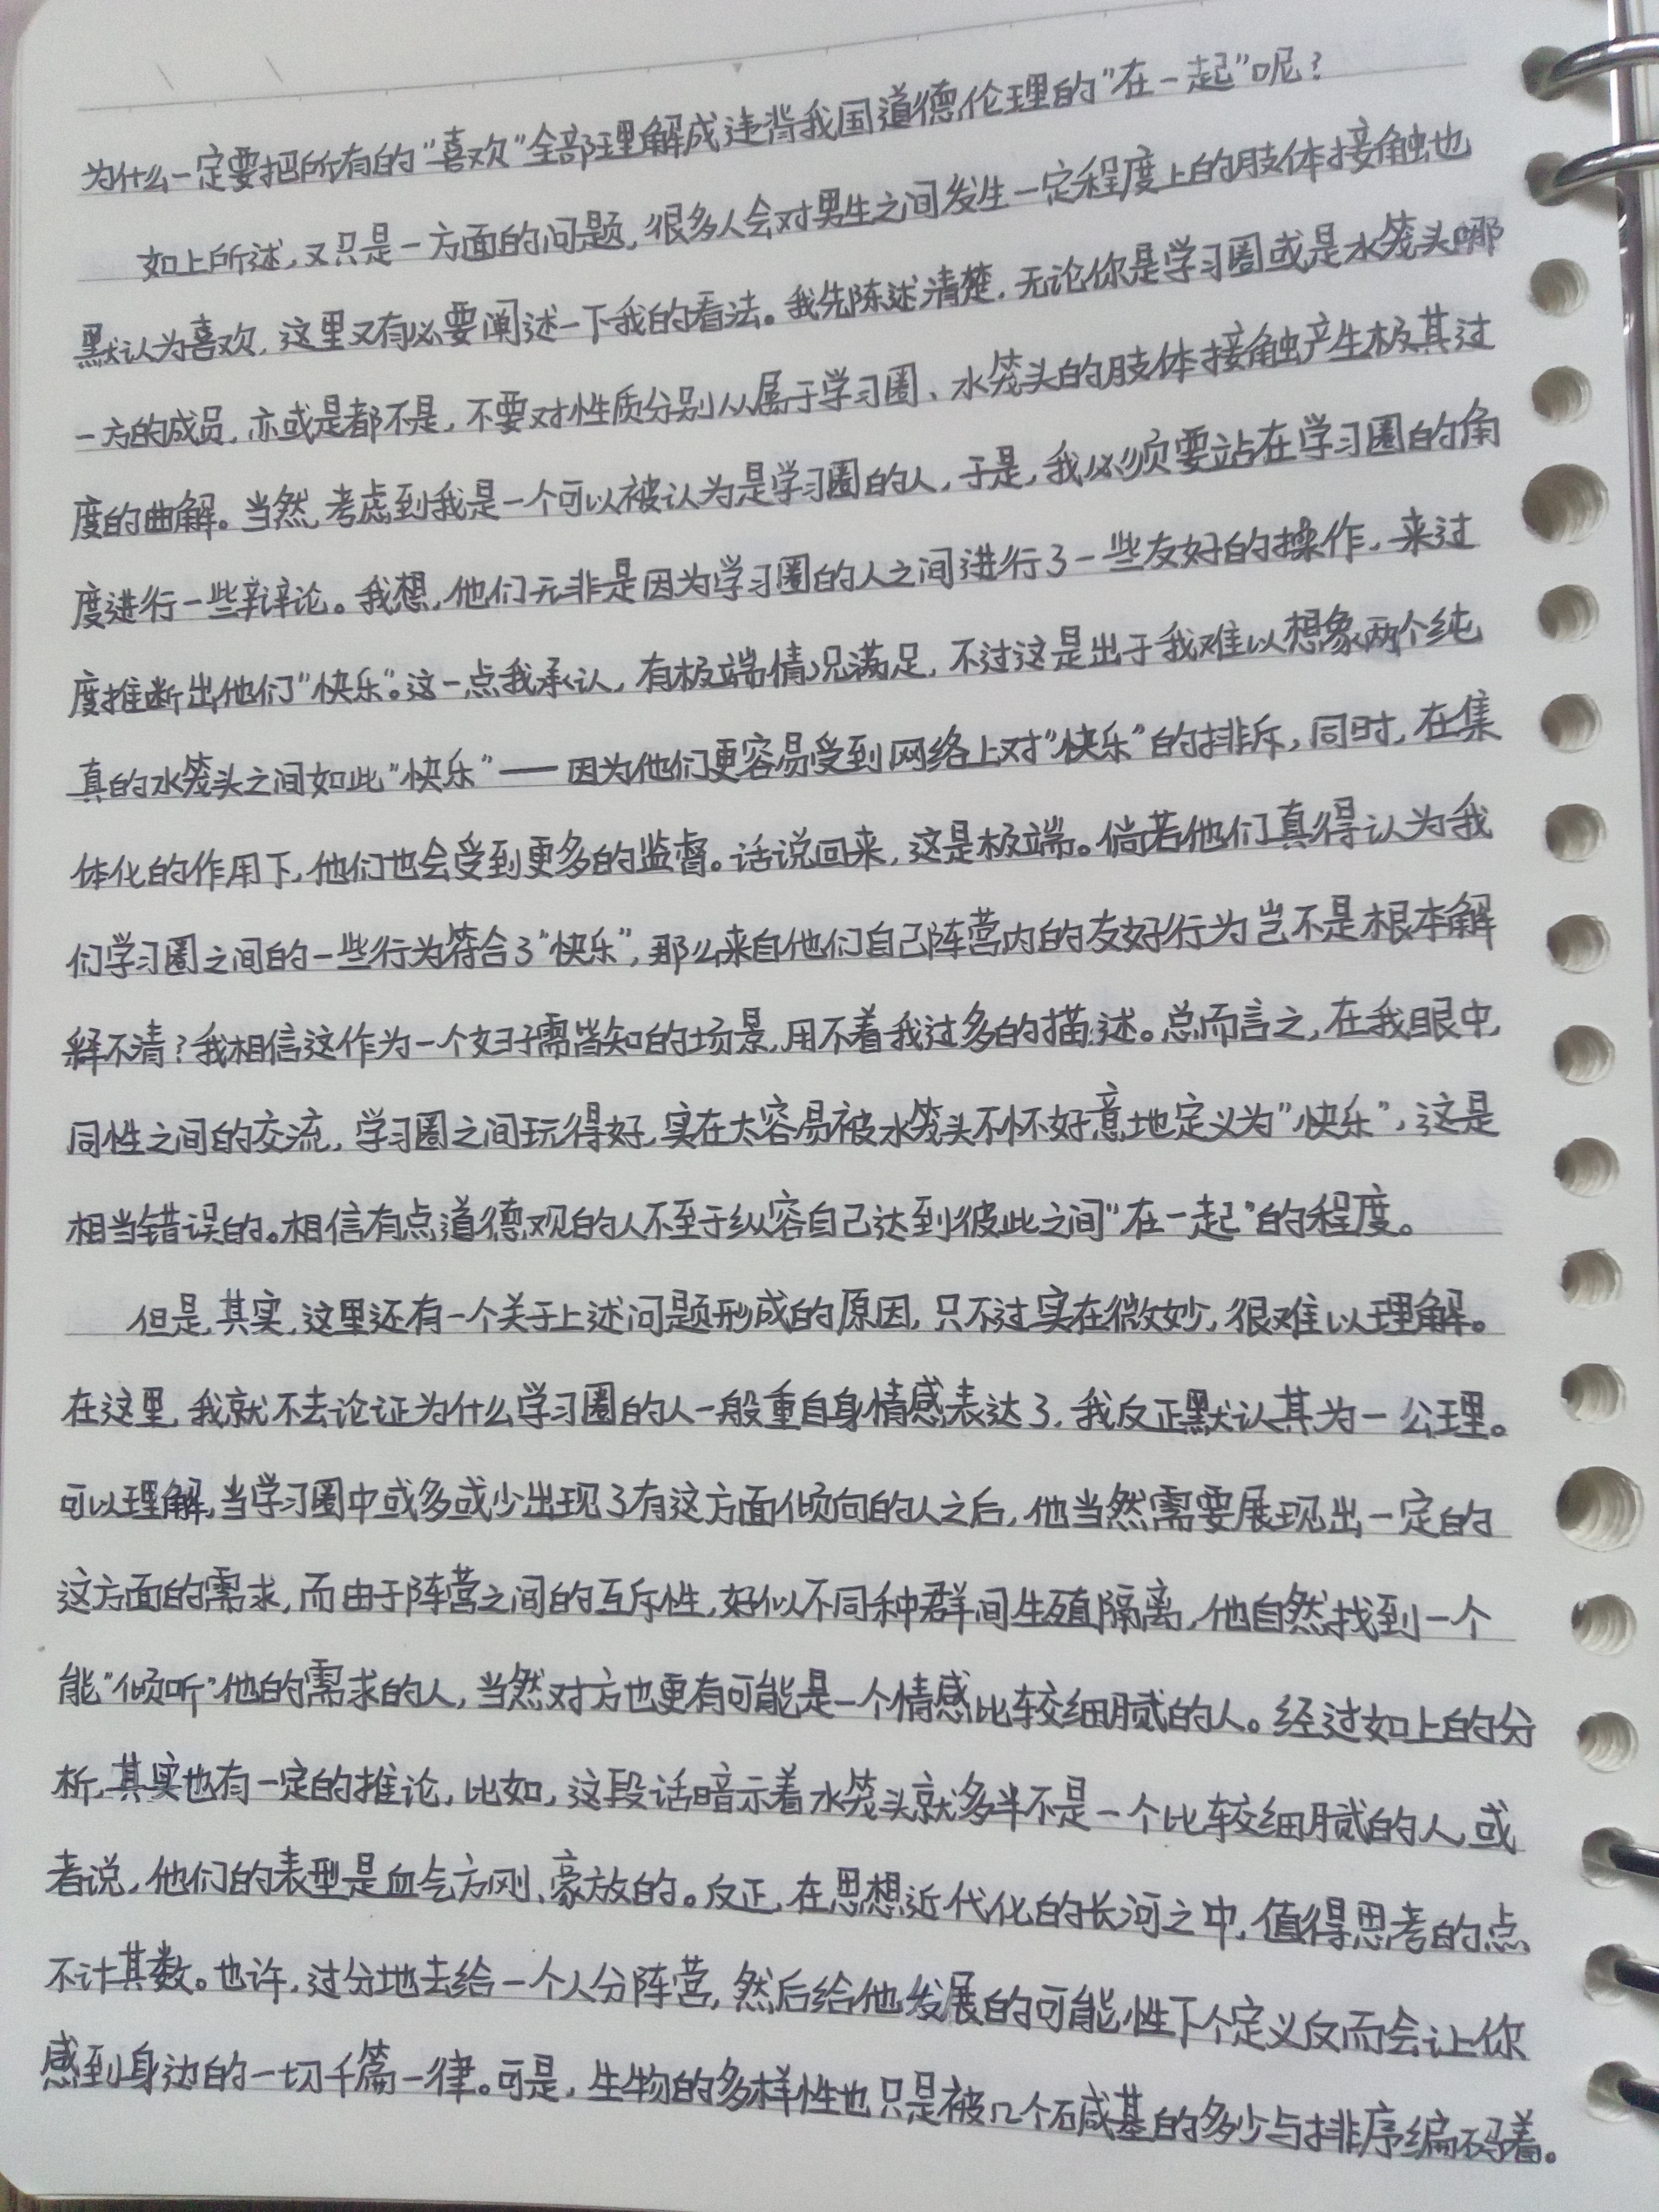 为什么一定要把所有的"喜欢"全部理解成违背我国道德伦理的"在一起"呢?
如上所述,又只是一方面的问题,很多人会对男生之间发生一定程度上的肢体接触也
默认为喜欢,这里又有必要阐述一下我的看法。我先陈述清楚,无论你是学习圈或是水笼头哪
一方的成员,亦或是都不是,不要对性质分别从属于学习圈、水笼头的肢体接触产生极其过
度的曲解。当然,考虑到我是一个可以被认为是学习圈的人,于是,我必须要站在学习圈的角
度进行一些辩论。我想,他们无非是因为学习圈的人之间进行了一些友好的操作,来过
度推断出他们"快乐"。这一点我承认,有极端情况满足,不过这是出于我难以想象两个纯
真的水笼头之间如此"快乐"——因为他们更容易受到网络上对"快乐"的排斥,同时,在集
体化的作用下,他们也会受到更多的监督。话说回来,这是极端。倘若他们真得认为我
们学习圈之间的一些行为符合了"快乐",那么来自他们自己阵营内的友好行为岂不是根本解
释不清?我相信这作为一个妇孺皆知的场景,用不着我过多的描述。总而言之,在我眼中,
同性之间的交流,学习圈之间玩得好,实在太容易被水笼头不怀好意地定义为"快乐",这是
相当错误的。相信有点道德观的人不至于纵容自己达到彼此之间"在一起"的程度。
但是,其实,这里还有一个关于上述问题形成的原因,只不过实在微妙,很难以理解。
在这里,我就不去论证为什么学习圈的人一般重自身情感表达了,我反正默认其为一公理。
可以理解,当学习圈中或多或少出现了有这方面倾向的人之后,他当然需要展现出一定的
这方面的需求,而由于阵营之间的互斥性,好似不同种群间生殖隔离,他自然找到一个
能"倾听"他的需求的人,当然对方也更有可能是一个情感比较细腻的人。经过如上的分
析,其实也有一定的推论,比如,这段话暗示着水笼头就多半不是一个比较细腻的人,或
者说,他们的表型是血气方刚、豪放的。反正,在思想近代化的长河之中,值得思考的点
不计其数。也许,过分地去给一个人分阵营,然后给他发展的可能性下个定义反而会让你
感到身边的一切千篇一律。可是,生物的多样性也只是被几个碱基的多少与排序编码着。